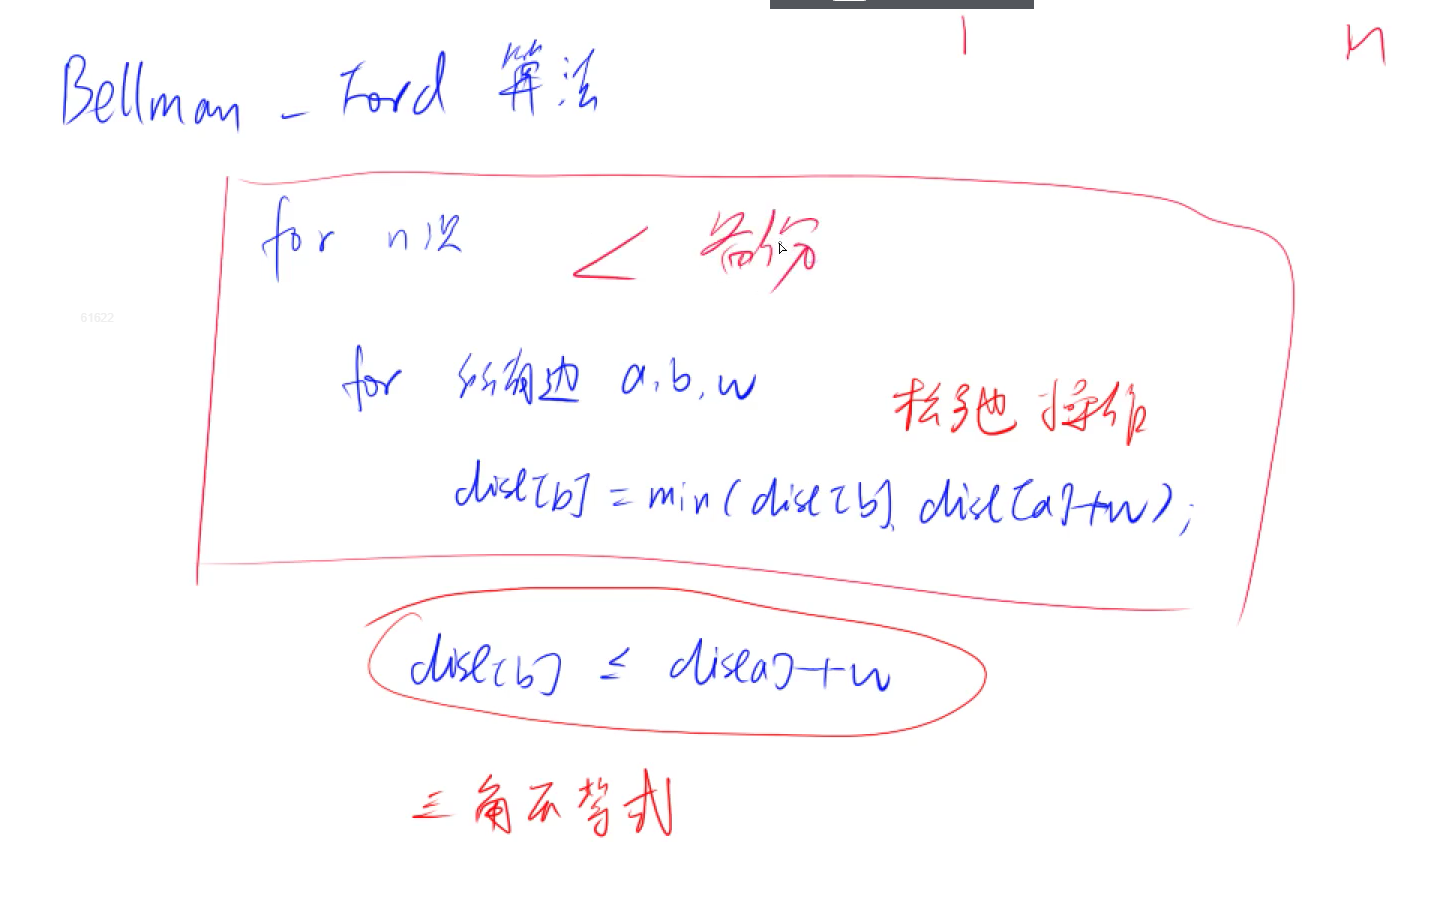 1 n
Bellman - Ford 算法
for n次 备份
61622
for 所有边 a, b, w
松弛操作
dist[b] = min(dist[b], dist[a]+w);
dist[b] ≤ dist[a]+w
三角不等式